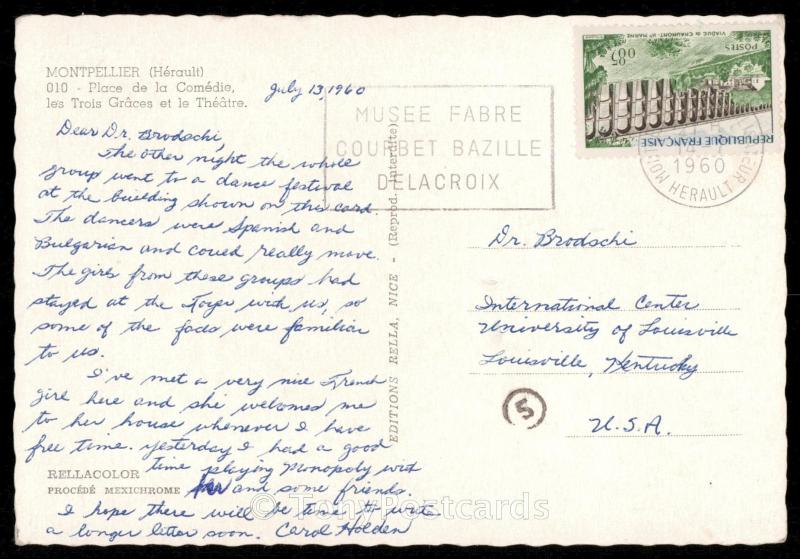 MONTPELLIER (Hérault)
010 - Place de la Comédie,
les Trois Grâces et le Théâtre.
July 13, 1960
Dear Dr. Brodschi,
The other night the whole
group went to a dance festival
at the building shown on this card.
The dancers were Spanish and
Bulgarian and could really move.
The girls from these groups had
stayed at the Foyer with us, so
some of the faces were familiar
to us.
I've met a very nice French
girl here and she welcomes me
to her house whenever I have
free time. Yesterday I had a good
time playing Monopoly with
her and some friends.
I hope there will be time to write
a longer letter soon. Carol Holden
RELLACOLOR
PROCÉDÉ MEXICHROME
EDITIONS RELLA, NICE - (Reprod. interdite)
MUSEE FABRE
COURBET BAZILLE
DELACROIX
VIADUC DE CHAUMONT-HTE MARNE
POSTES
0.85
REPUBLIQUE FRANÇAISE
1960
HERAULT
Dr. Brodschi
International Center
University of Louisville
Louisville, Kentucky
U.S.A.
5
© TonyPostcards